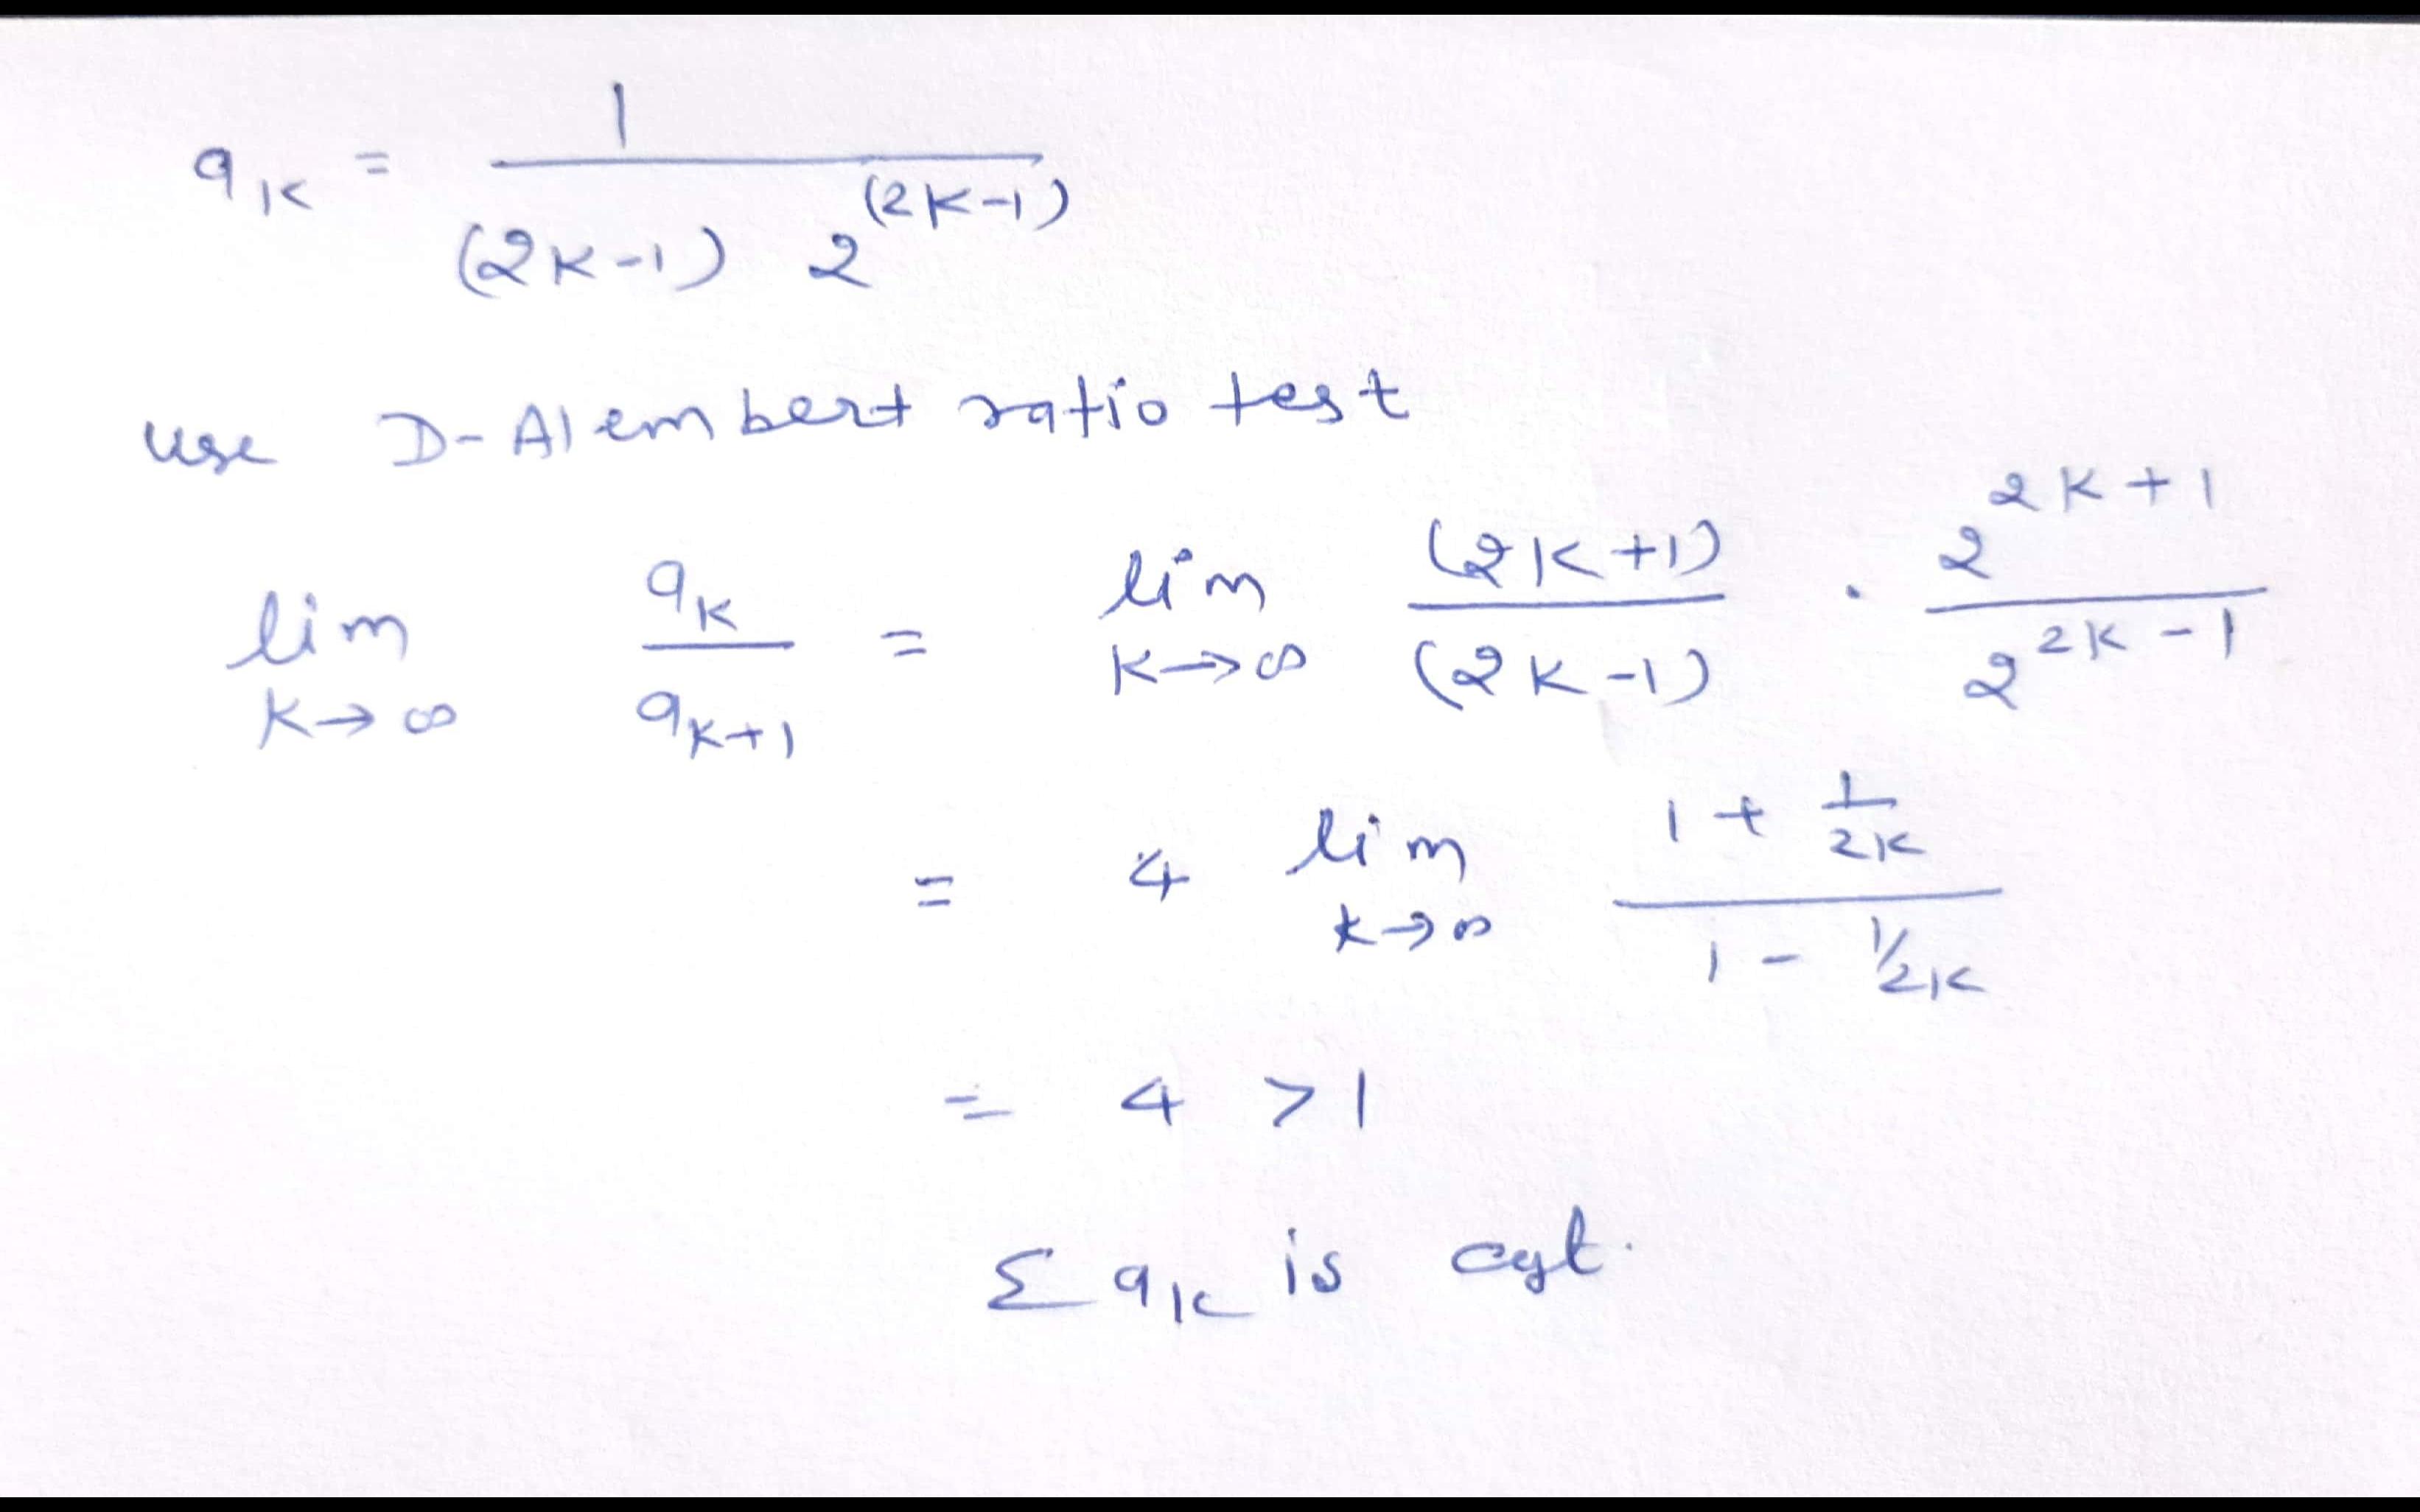 a_k = 1 / ((2k-1) 2^(2k-1))
use D-Alembert ratio test
lim k→∞ a_k / a_k+1 = lim k→∞ (2k+1) / (2k-1) · 2^2k+1 / 2^2k-1
= 4 lim k→∞ (1 + 1/2k) / (1 - 1/2k)
= 4 > 1
Σ a_k is cgt.